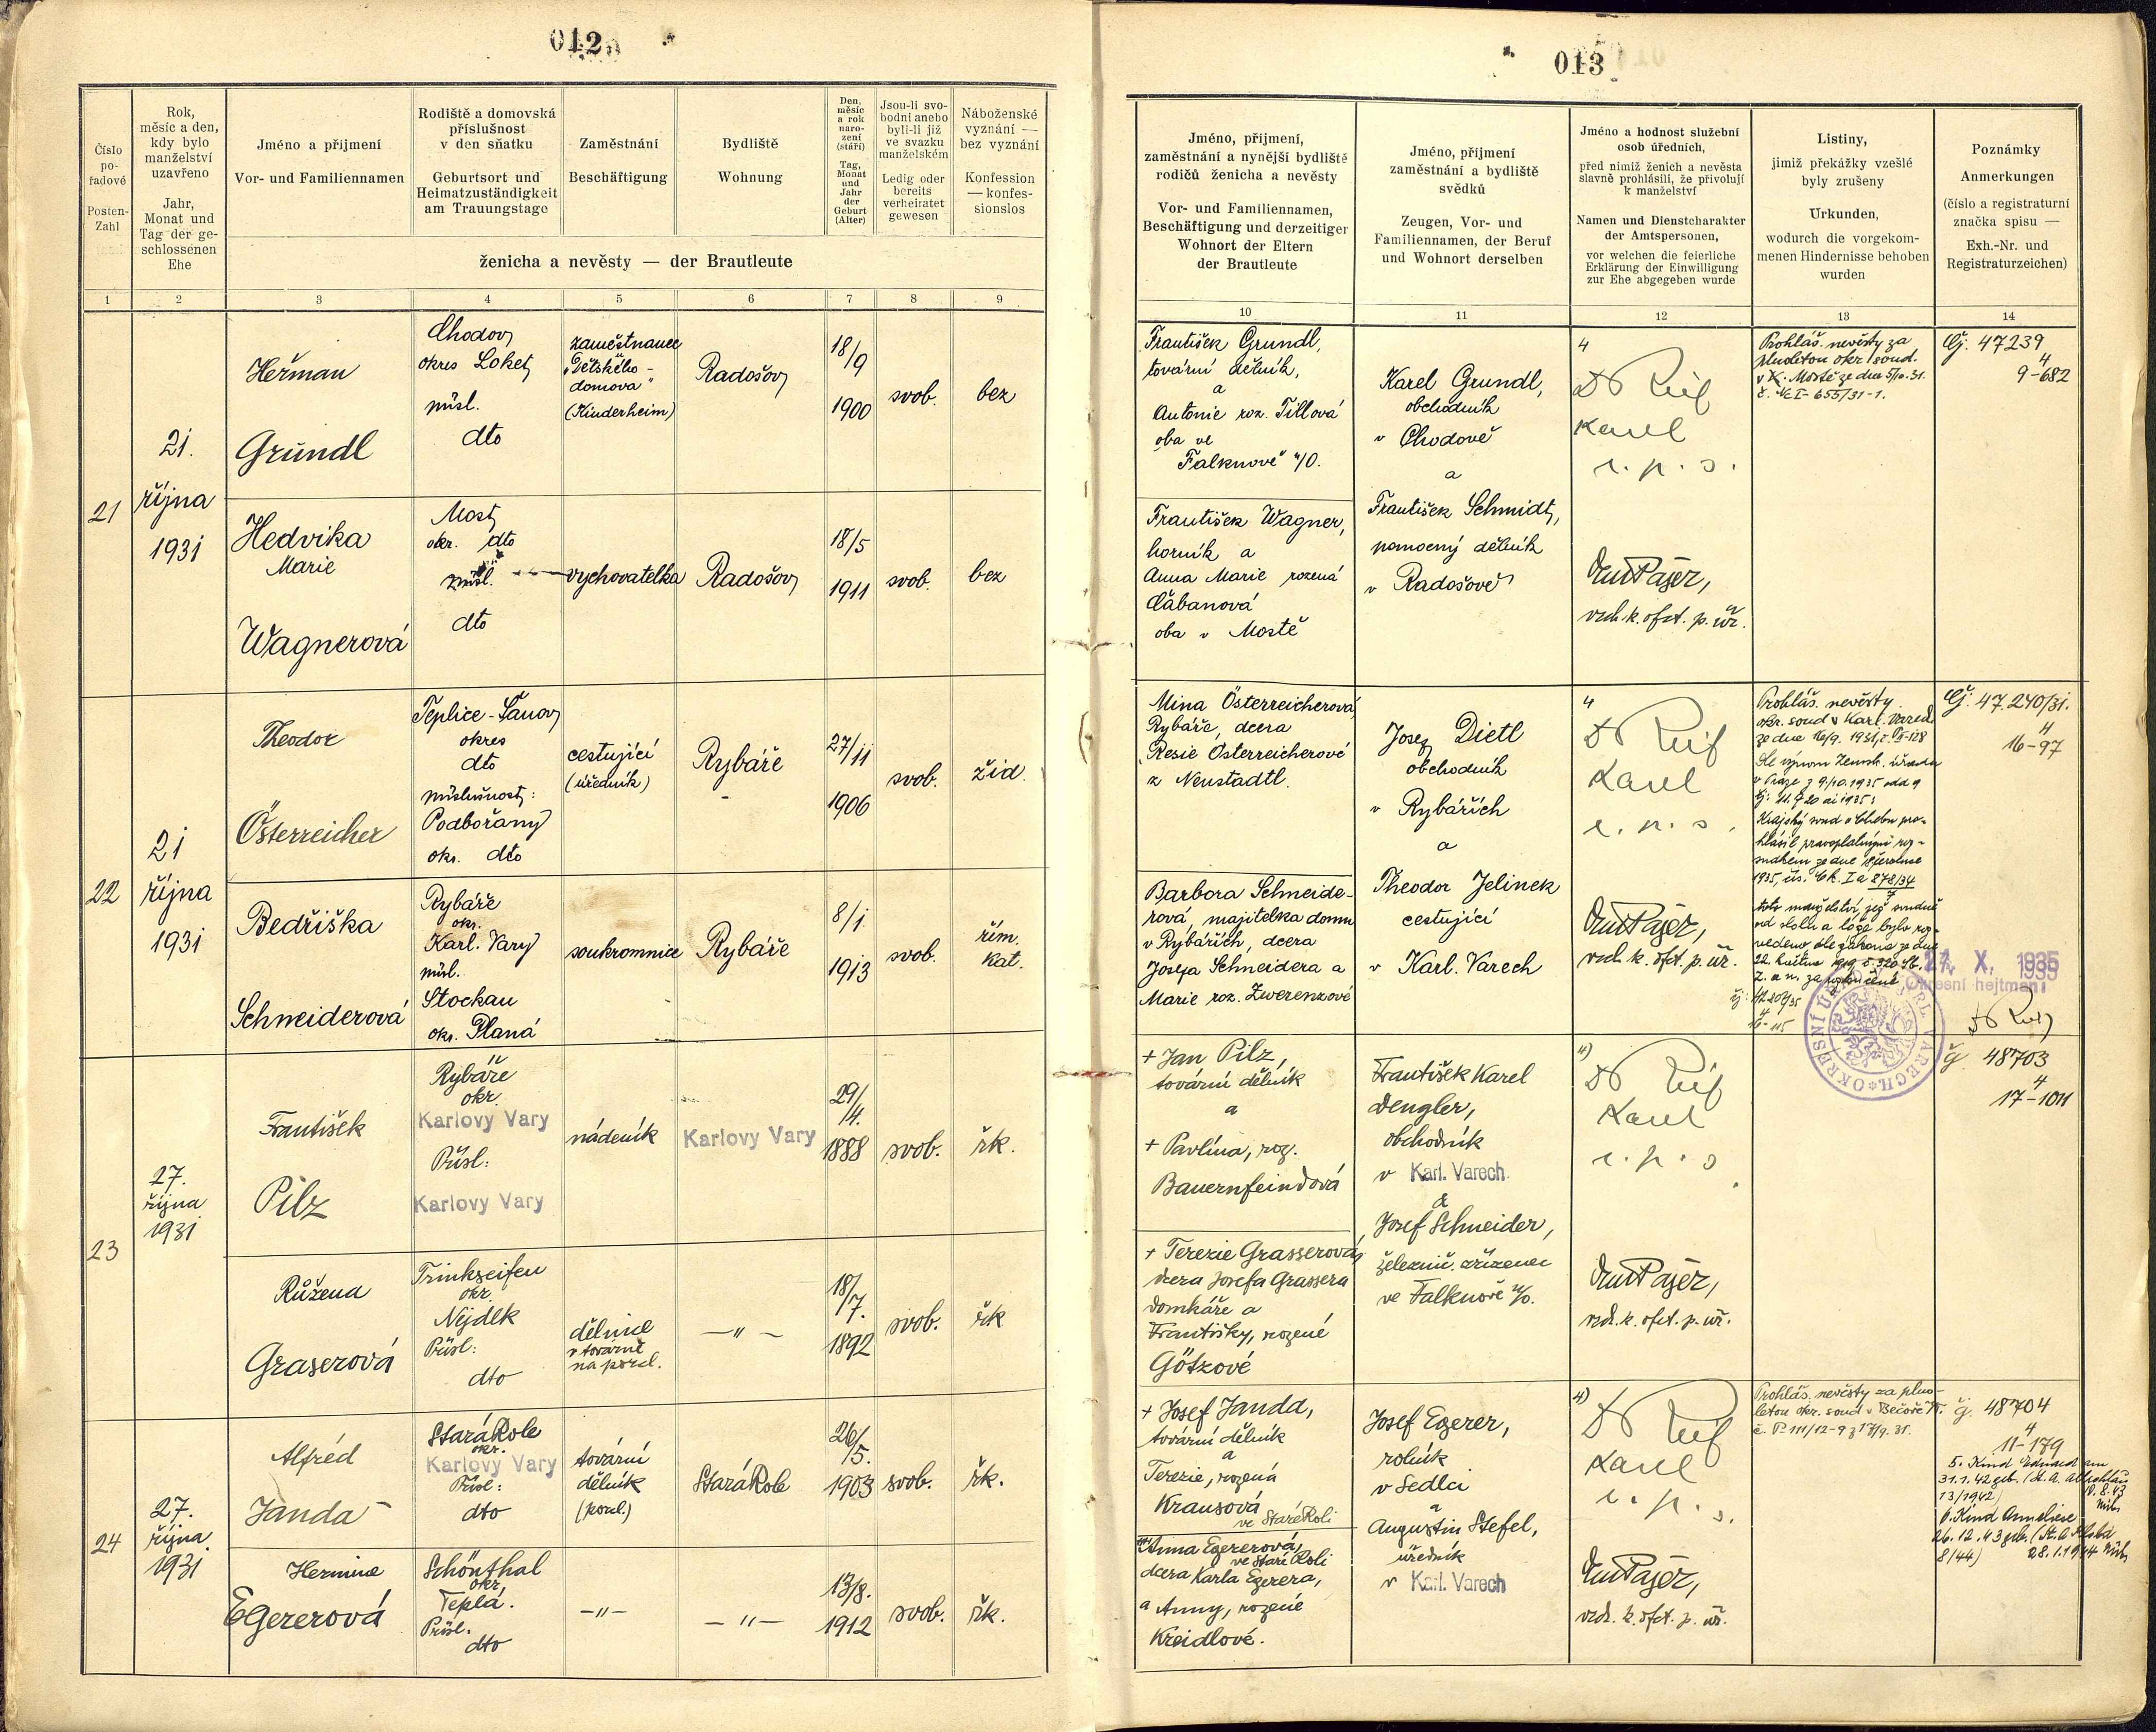 012
013
Číslo
po-
řadové
Posten-
Zahl
Rok,
měsíc a den,
kdy bylo
manželství
uzavřeno
Jahr,
Monat und
Tag der ge-
schlossenen
Ehe
Jméno a příjmení
Vor- und Familiennamen
Rodiště a domovská
příslušnost
v den sňatku
Geburtsort und
Heimatzuständigkeit
am Trauungstage
Zaměstnání
Beschäftigung
Bydliště
Wohnung
Den,
měsíc
a rok
naro-
zení
(stáří)
Tag,
Monat
und
Jahr
der
Geburt
(Alter)
Jsou-li svo-
bodni anebo
byli-li již
ve svazku
manželském
Ledig oder
bereits
verheiratet
gewesen
Náboženské
vyznání —
bez vyznání
Konfession
— konfes-
sionslos
ženicha a nevěsty — der Brautleute
1 2 3 4 5 6 7 8 9
Jméno, příjmení,
zaměstnání a nynější bydliště
rodičů ženicha a nevěsty
Vor- und Familiennamen,
Beschäftigung und derzeitiger
Wohnort der Eltern
der Brautleute
Jméno, příjmení
zaměstnání a bydliště
svědků
Zeugen, Vor- und
Familiennamen, der Beruf
und Wohnort derselben
Jméno a hodnost služební
osob úředních,
před nimiž ženich a nevěsta
slavně prohlásili, že přivolují
k manželství
Namen und Dienstcharakter
der Amtspersonen,
vor welchen die feierliche
Erklärung der Einwilligung
zur Ehe abgegeben wurde
Listiny,
jimiž překážky vzešlé
byly zrušeny
Urkunden,
wodurch die vorgekom-
menen Hindernisse behoben
wurden
Poznámky
Anmerkungen
(číslo a registraturní
značka spisu —
Exh.-Nr. und
Registraturzeichen)
10 11 12 13 14
21
21.
října
1931
Heřman
Grundl
Chodov
okres Loket
přísl.
dto
zaměstnanec
"Dětského
domova"
(Kinderheim)
Radošov
18/9
1900
svob.
bez
František Grundl,
tovární dělník,
a
Antonie roz. Tillová
oba ve
Falknově n/O.
Karel Grundl,
obchodník
v Chodově
a
František Schmidt,
pomocný dělník
v Radošově
4
Karel
Prohláš. nevěsty za
plnoletou okr. soud.
v Mostě ze dne 5/10.31.
č. Nc I-655/31-1.
Čj. 47239
4
9-682
Hedvika
Marie
Wagnerová
Most
okr. dto
přísl.
dto
vychovatelka
Radošov
18/5
1911
svob.
bez
František Wagner,
horník a
Anna Marie rozená
Cábanová
oba v Mostě
vrch. k. ofct. p. úř.
22
21
října
1931
Theodor
Österreicher
Teplice-Šanov
okres
dto
příslušnost:
Podbořany
okr. dto
cestující
(úředník)
Rybáře
27/11
1906
svob.
žid.
Mina Österreicherová
Rybáře, dcera
Resie Österreicherové
z Neustadtl.
Josef Dietl
obchodník
v Rybářích
a
Theodor Jelinek
cestující
v Karl. Varech
4
Karel
Prohláš. nevěsty
okr. soud v Karl. Varech
Čj. 47.240/31.
4
16-97
Bedřiška
Schneiderová
Rybáře
okr.
Karl. Vary
přísl.
Stockau
okr. Planá
soukromnice
Rybáře
8/1
1913
svob.
řím.
kat.
Barbora Schneide-
rová, majitelka domu
v Rybářích, dcera
Josefa Schneidera a
Marie roz. Zwerenzové
vrch. k. ofct. p. úř.
Krajský soud v Chebu pro-
hlásil pravoplatným roz-
sudkem ze dne
1935, čís. Ck. I a 278/34
X. 1935
Okresní hejtman:
23
27.
října
1931
František
Pilz
Rybáře
okr.
Karlovy Vary
Přísl:
Karlovy Vary
nádeník
Karlovy Vary
29/4.
1888
svob.
řk.
+ Jan Pilz,
tovární dělník
a
+ Pavlína, roz.
Bauernfeindová
František Karel
Dengler,
obchodník
v Karl. Varech
a
Josef Schneider,
železnič. zřízenec
ve Falknově n/O.
4)
Karel
čj. 48703
4
17-1011
Růžena
Graserová
Trinkseifen
okr.
Nejdek
Přísl:
dto
dělnice
v továrně
na porcl.
—"—
18/7.
1892
svob.
řk
+ Terezie Grasserová,
dcera Josefa Grassera
domkáře a
Františky, rozené
Götzové
vrch. k. ofct. p. úř.
24
27.
října
1931
Alfréd
Janda
Stará Role
okr.
Karlovy Vary
Přísl:
dto
tovární
dělník
(porcl.)
Stará Role
26/5.
1903
svob.
řk.
+ Josef Janda,
tovární dělník
a
Terezie, rozená
Krausová
ve Staré Roli
Josef Egerer,
rolník
v Sedlci
a
Augustin Stefel,
úředník
v Karl. Varech
4)
Karel
Prohláš. nevěsty za plno-
letou okr. soud v Bečově
č. P 111/12-9 z 17/9. 31.
čj. 48704
4
11-179
5. Kind Eduard am
31.1.42 geb.
13/1942)
6. Kind Anneliese
26.12.43 geb.
8/44) 28.1.1944
Hermine
Egererová
Schönthal
okr.
Teplá.
Přísl.
dto
—"—
—"—
13/8.
1912
svob.
řk.
Anna Egererová,
ve Staré Roli
dcera Karla Egerera,
a Anny, rozené
Kreidlové.
vrch. k. ofct. p. úř.